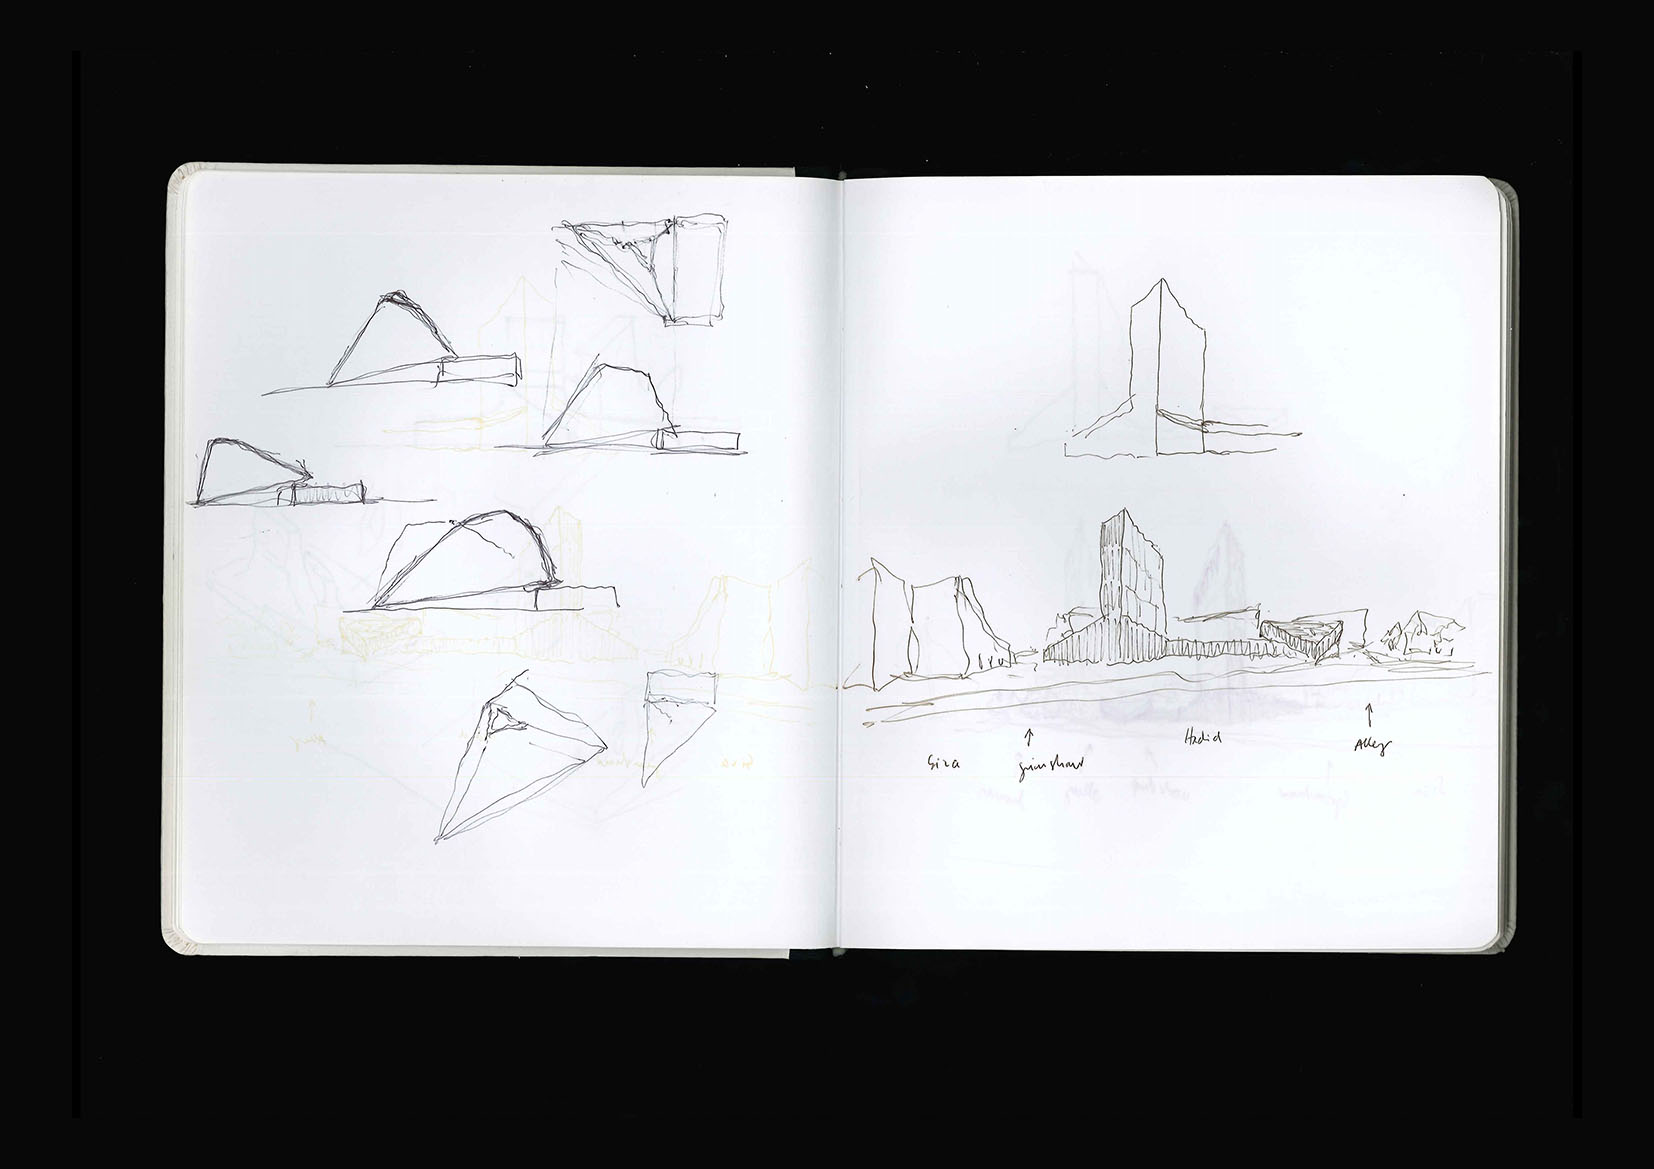 Siza
grimshaw
Hadid
Alley